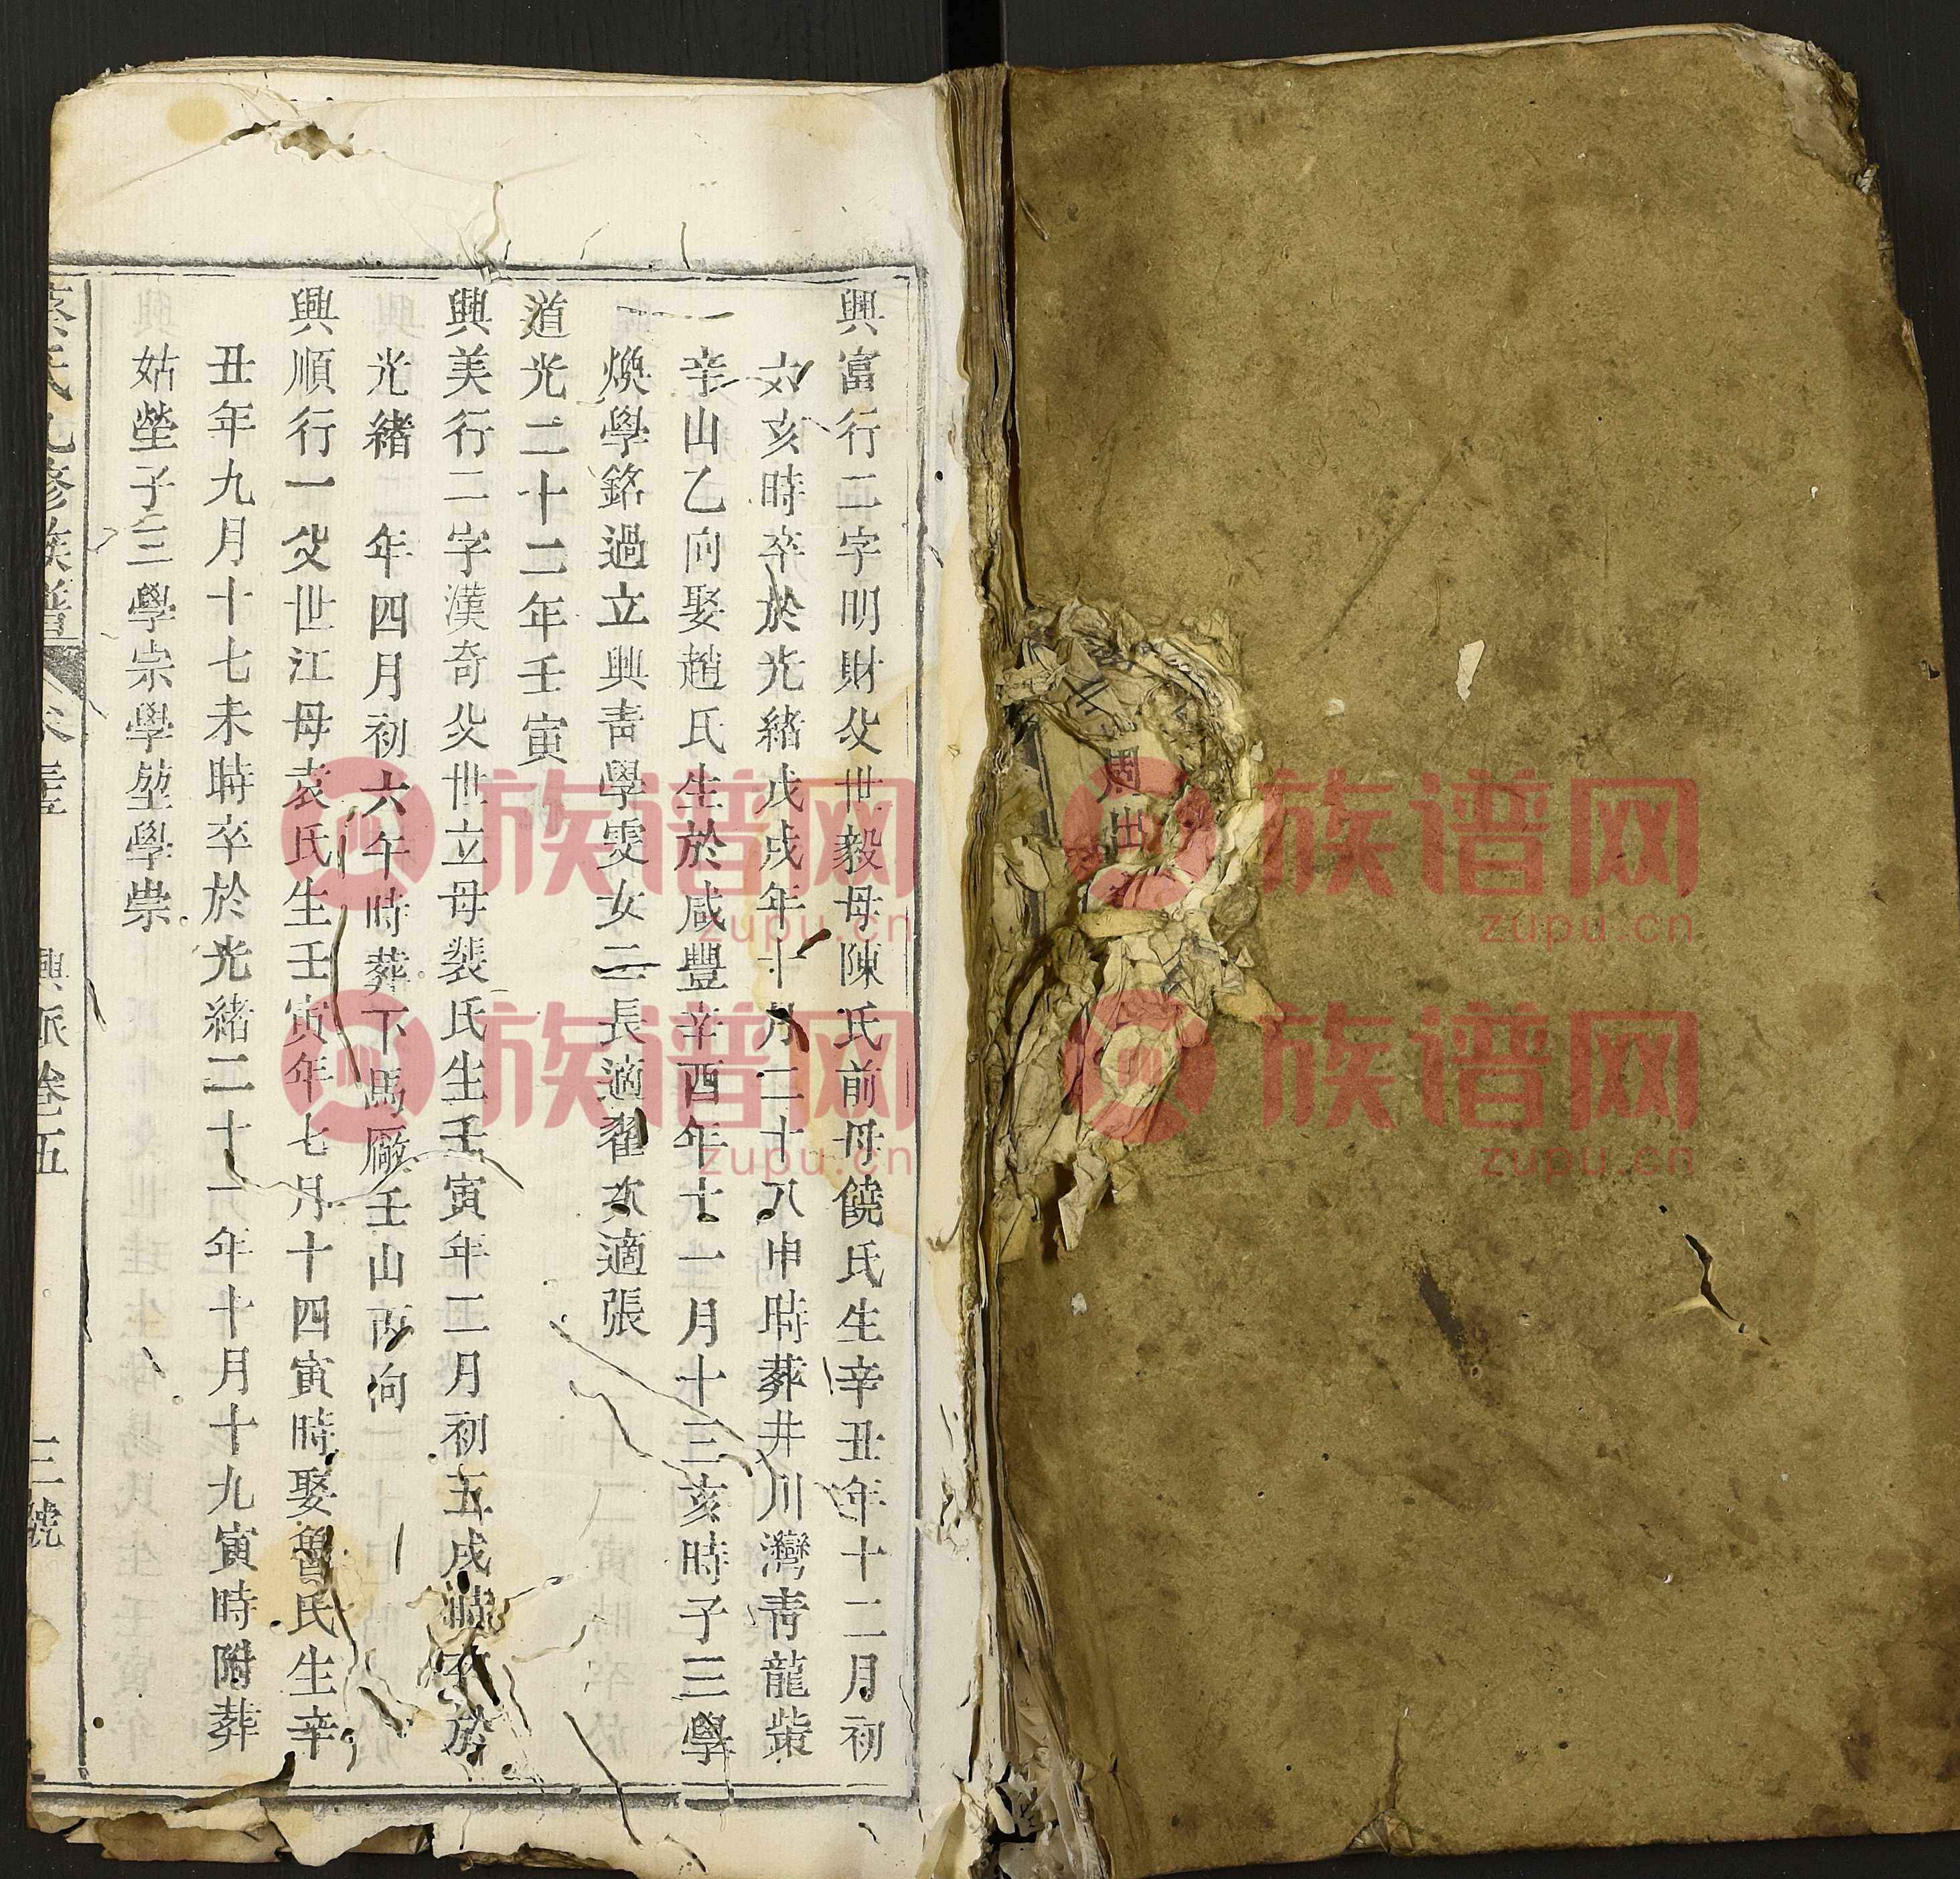 興富行二字明財父世毅母陳氏前母饒氏生辛丑年十二月初
六亥時卒於光緒戊戌年十月二十八申時葬井川灣青龍柴
辛山乙向娶趙氏生於咸豐辛酉年十一月十三亥時子三學
煥學銘過立興青學雯女二長適翟次適張
道光二十二年壬寅
興美行二字漢奇父世立母裴氏生壬寅年二月初五戌時卒於
光緒 年四月初六午時葬下馬廠壬山丙向
興順行一父世江母袁氏生壬寅年七月十四寅時娶魯氏生辛
丑年九月十七未時卒於光緒二十一年十月十九寅時附葬
姑塋子三學宗學堃學崇
氏九修族譜
興派卷五
三號
周出
族谱网
zupu.cn
族谱网
zupu.cn
族谱网
zupu.cn
族谱网
zupu.cn